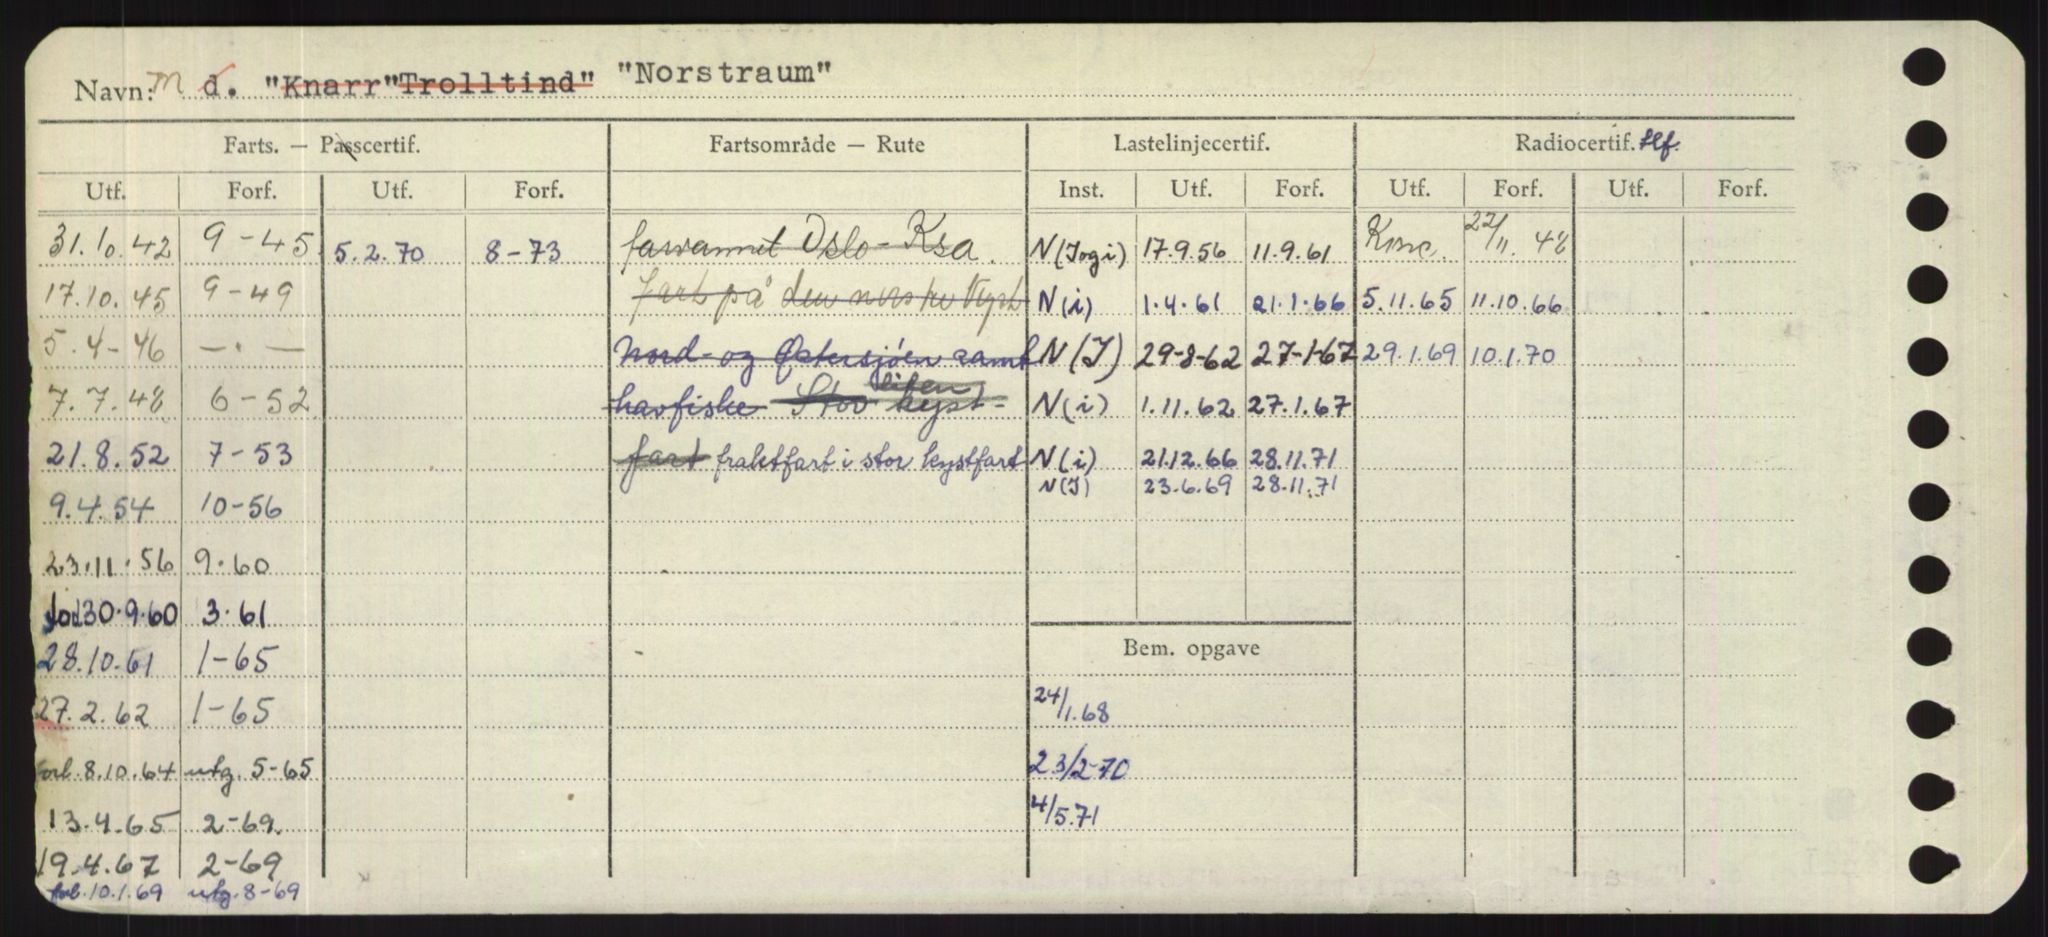 Navn: M d. "Knarr" "Trolltind" "Norstraum"
Farts. — Passcertif. Fartsområde — Rute Lastelinjecertif. Radiocertif. tlf.
Utf. Forf. Utf. Forf. Inst. Utf. Forf. Utf. Forf. Utf. Forf.
31.10.42 9-45 5.2.70 8-73 farvannet Oslo - Ksa. N(Iogi) 17.9.56 11.9.61 Konc. 22/11.48
17.10.45 9-49 fart på den norske kyst N(i) 1.4.61 21.1.66 5.11.65 11.10.66
5.4-46 —.— Nord- og Østersjøen samt N(I) 29-8-62 27-1-67 29.1.69 10.1.70
7.7.48 6-52 havfiske Stor liten kyst- N(i) 1.11.62 27.1.67
21.8.52 7-53 fart fraktfart i stor kystfart N(i) 21.12.66 28.11.71
N(I) 23.6.69 28.11.71
9.4.54 10-56
23.11.56 9.60
30.9.60 3.61
28.10.61 1-65 Bem. opgave
27.2.62 1-65 24/1.68
forl. 8.10.64 utg. 5-65 23/2-70
13.4.65 2-69. 4/5.71
19.4.67 2-69
forl. 10.1.69 utg. 8-69